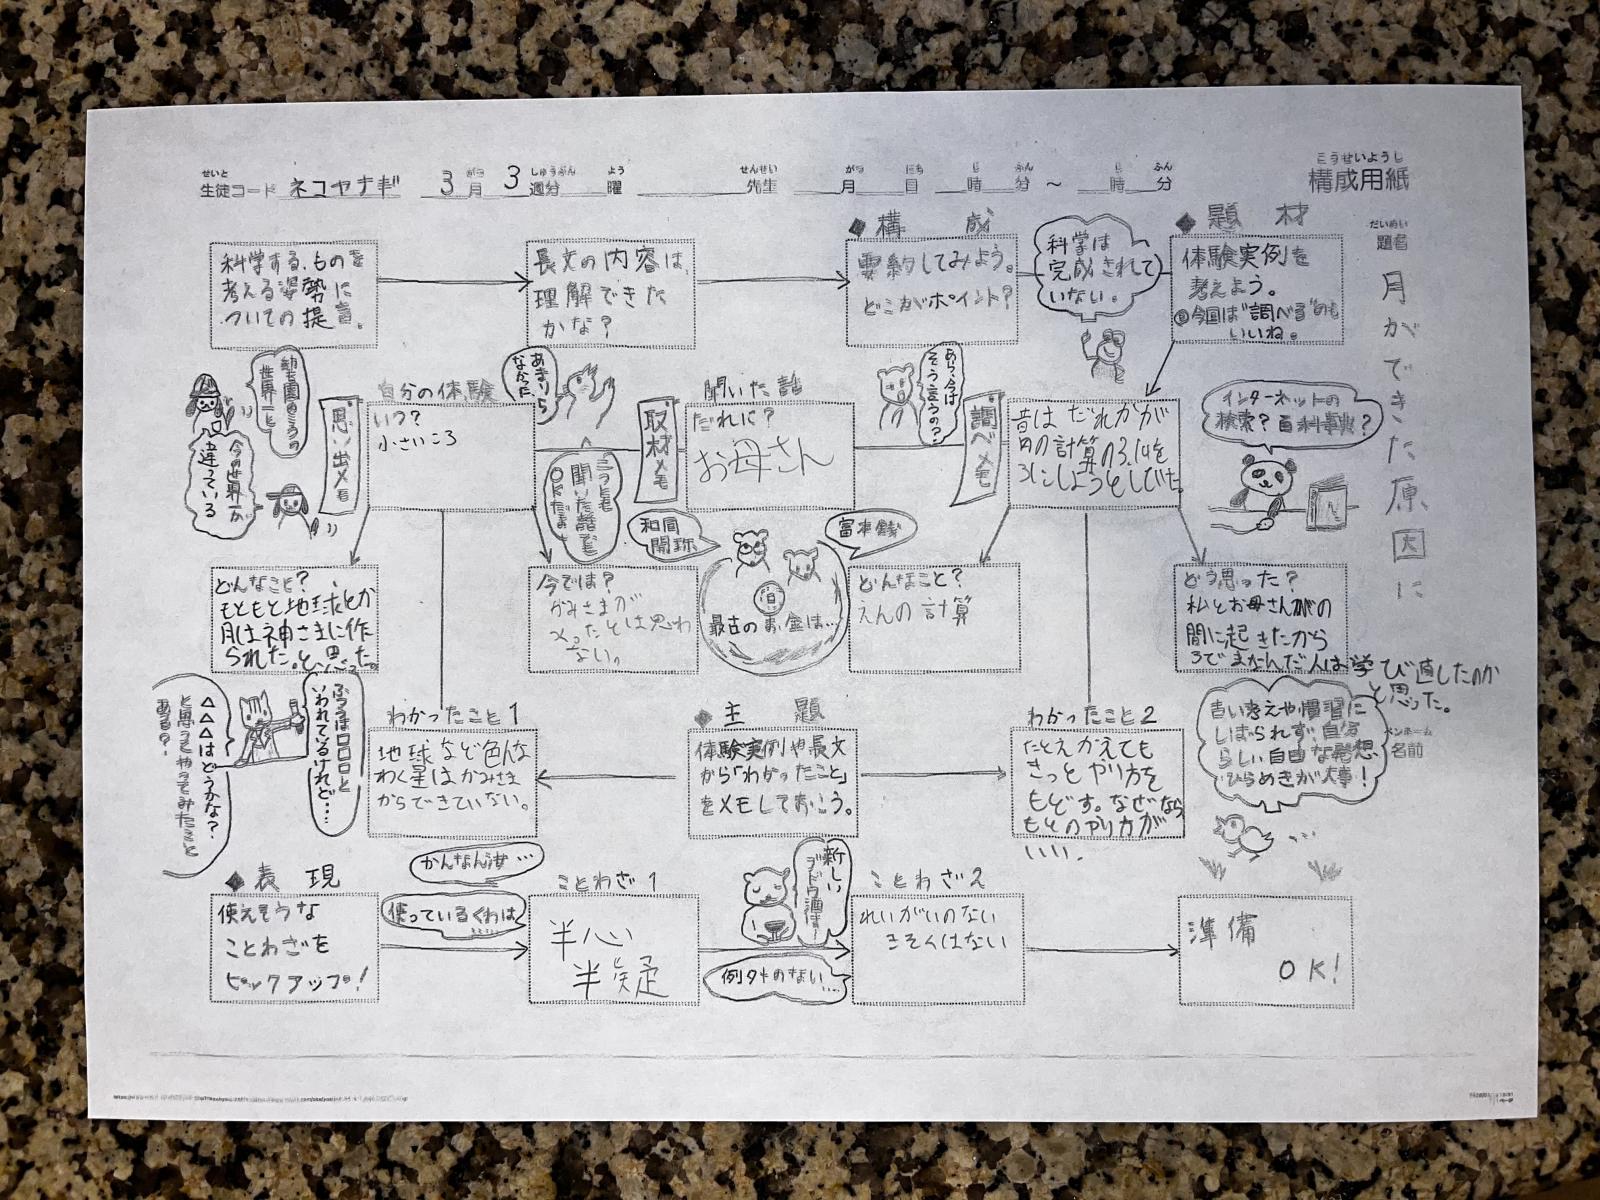 せいと がつ しゅうぶん よう せんせい がつ にち じ ふん じ ふん
生徒コード ネコヤナギ 3月 3週分 曜 先生 月 日 時 分 ～ 時 分
こうせいようし
構成用紙
だいめい
題名
月ができた原因に
科学する、ものを
考える姿勢に
ついての提言。
長文の内容は、
理解できた
かな?
◆構成
要約してみよう。
どこがポイント?
科学は
完成されて
いない。
◆題材
体験実例を
考えよう。
今回は"調べる"のも
いいね。
幼稚園のころの
世界一と
今の世界一が
違っている
思い出メモ
自分の体験
いつ?
小さいころ
あまり
なかったら
聞いた話でも
OKだよ!
取材メモ
聞いた話
だれに?
お母さん
あら、今は
そう言うの?
調べメモ
昔は だれかが
円の計算の3.14を
3にしようとしてた。
インターネットの
検索? 百科事典?
どんなこと?
もともと地球とか
月は神さまに作
られた。と、思った。
今では?
かみさまが
つくったとは思わ
ない。
和同
開珎
富本銭
最古のお金は…
どんなこと?
えんの計算
どう思った?
私とお母さんがの
間に起きたから
3でまなんだ人は学び直したのか
と思った。
ふつうは□□□と
いわれているけれど…
△△△はどうかな?
と思ってやってみたこと
ある?
わかったこと1
地球など色んな
わく星はかみさま
からできていない。
◆主題
体験実例や長文
から「わかったこと」
をメモしておこう。
わかったこと2
たとえかえても
きっと やり方を
もどす。なぜなら
もとのやり方が
いい。
古い考えや慣習に
しばられず、自分
らしい自由な発想、
ひらめきが大事!
名前
◆表現
使えそうな
ことわざを
ピックアップ!
かんなん汝…
使っているくわは
ことわざ1
半心
半疑
新しい
ブドウ酒は…
例外のない…
ことわざ2
れいがいのない
きそくはない
準備
OK!